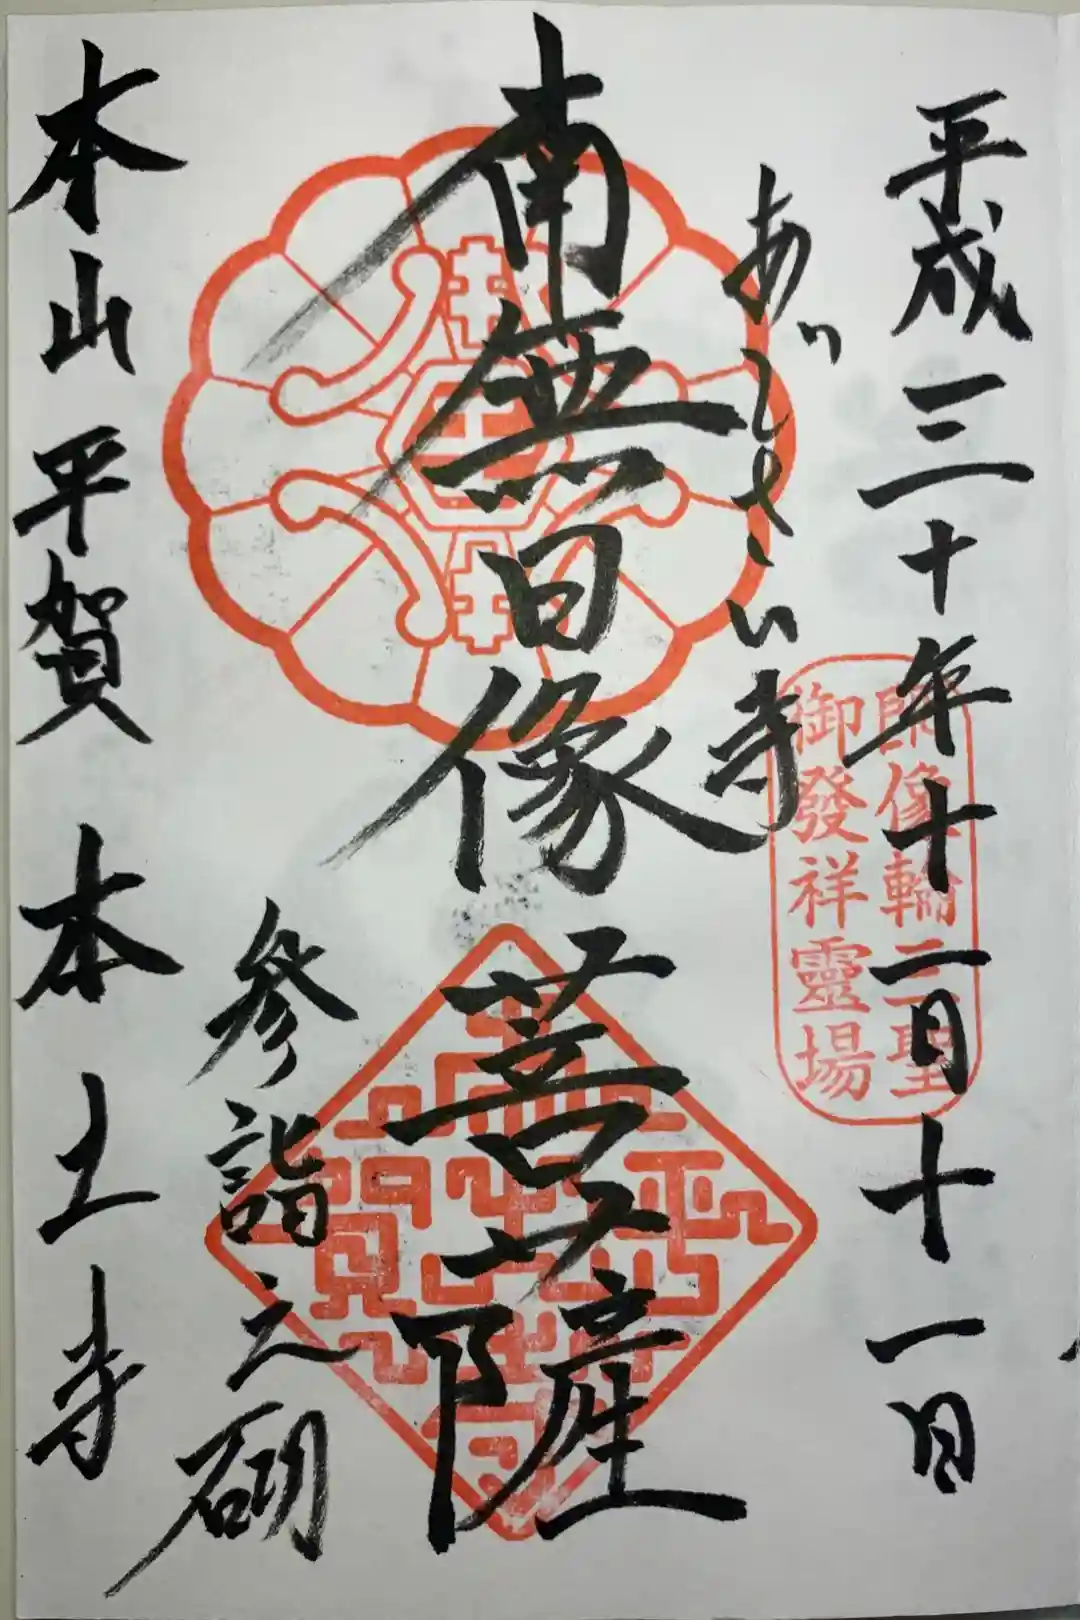 平成三十年十二月十一日
あぢさい寺
南無日像菩薩
参詣之砌
本山平賀本土寺
師像輪三聖
御發祥靈場